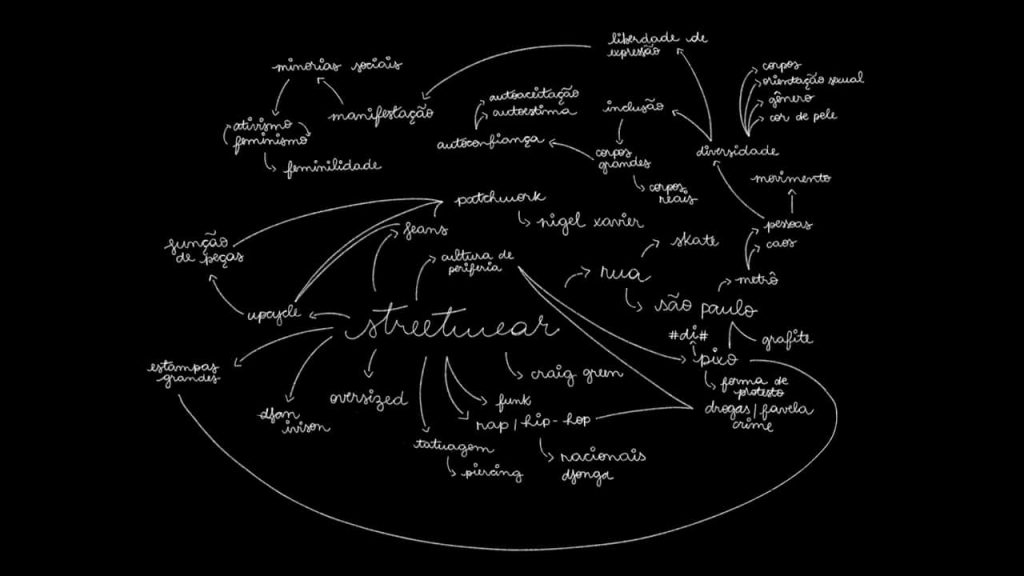 liberdade de
expressão
minorias sociais
corpos
orientação sexual
gênero
cor de pele
autoaceitação
autoestima
inclusão
manifestação
ativismo
feminismo
autoconfiança
feminilidade
corpos
grandes
diversidade
corpos
reais
movimento
patchwork
nigel xavier
pessoas
caos
jeans
função
de peças
cultura de
periferia
skate
rua
metrô
são paulo
upcycle
streetwear
#di#
grafite
pixo
estampas
grandes
craig green
forma de
protesto
oversized
funk
drogas/favela
crime
djan
ivison
rap/hip-hop
tatuagem
racionais
djonga
piercing